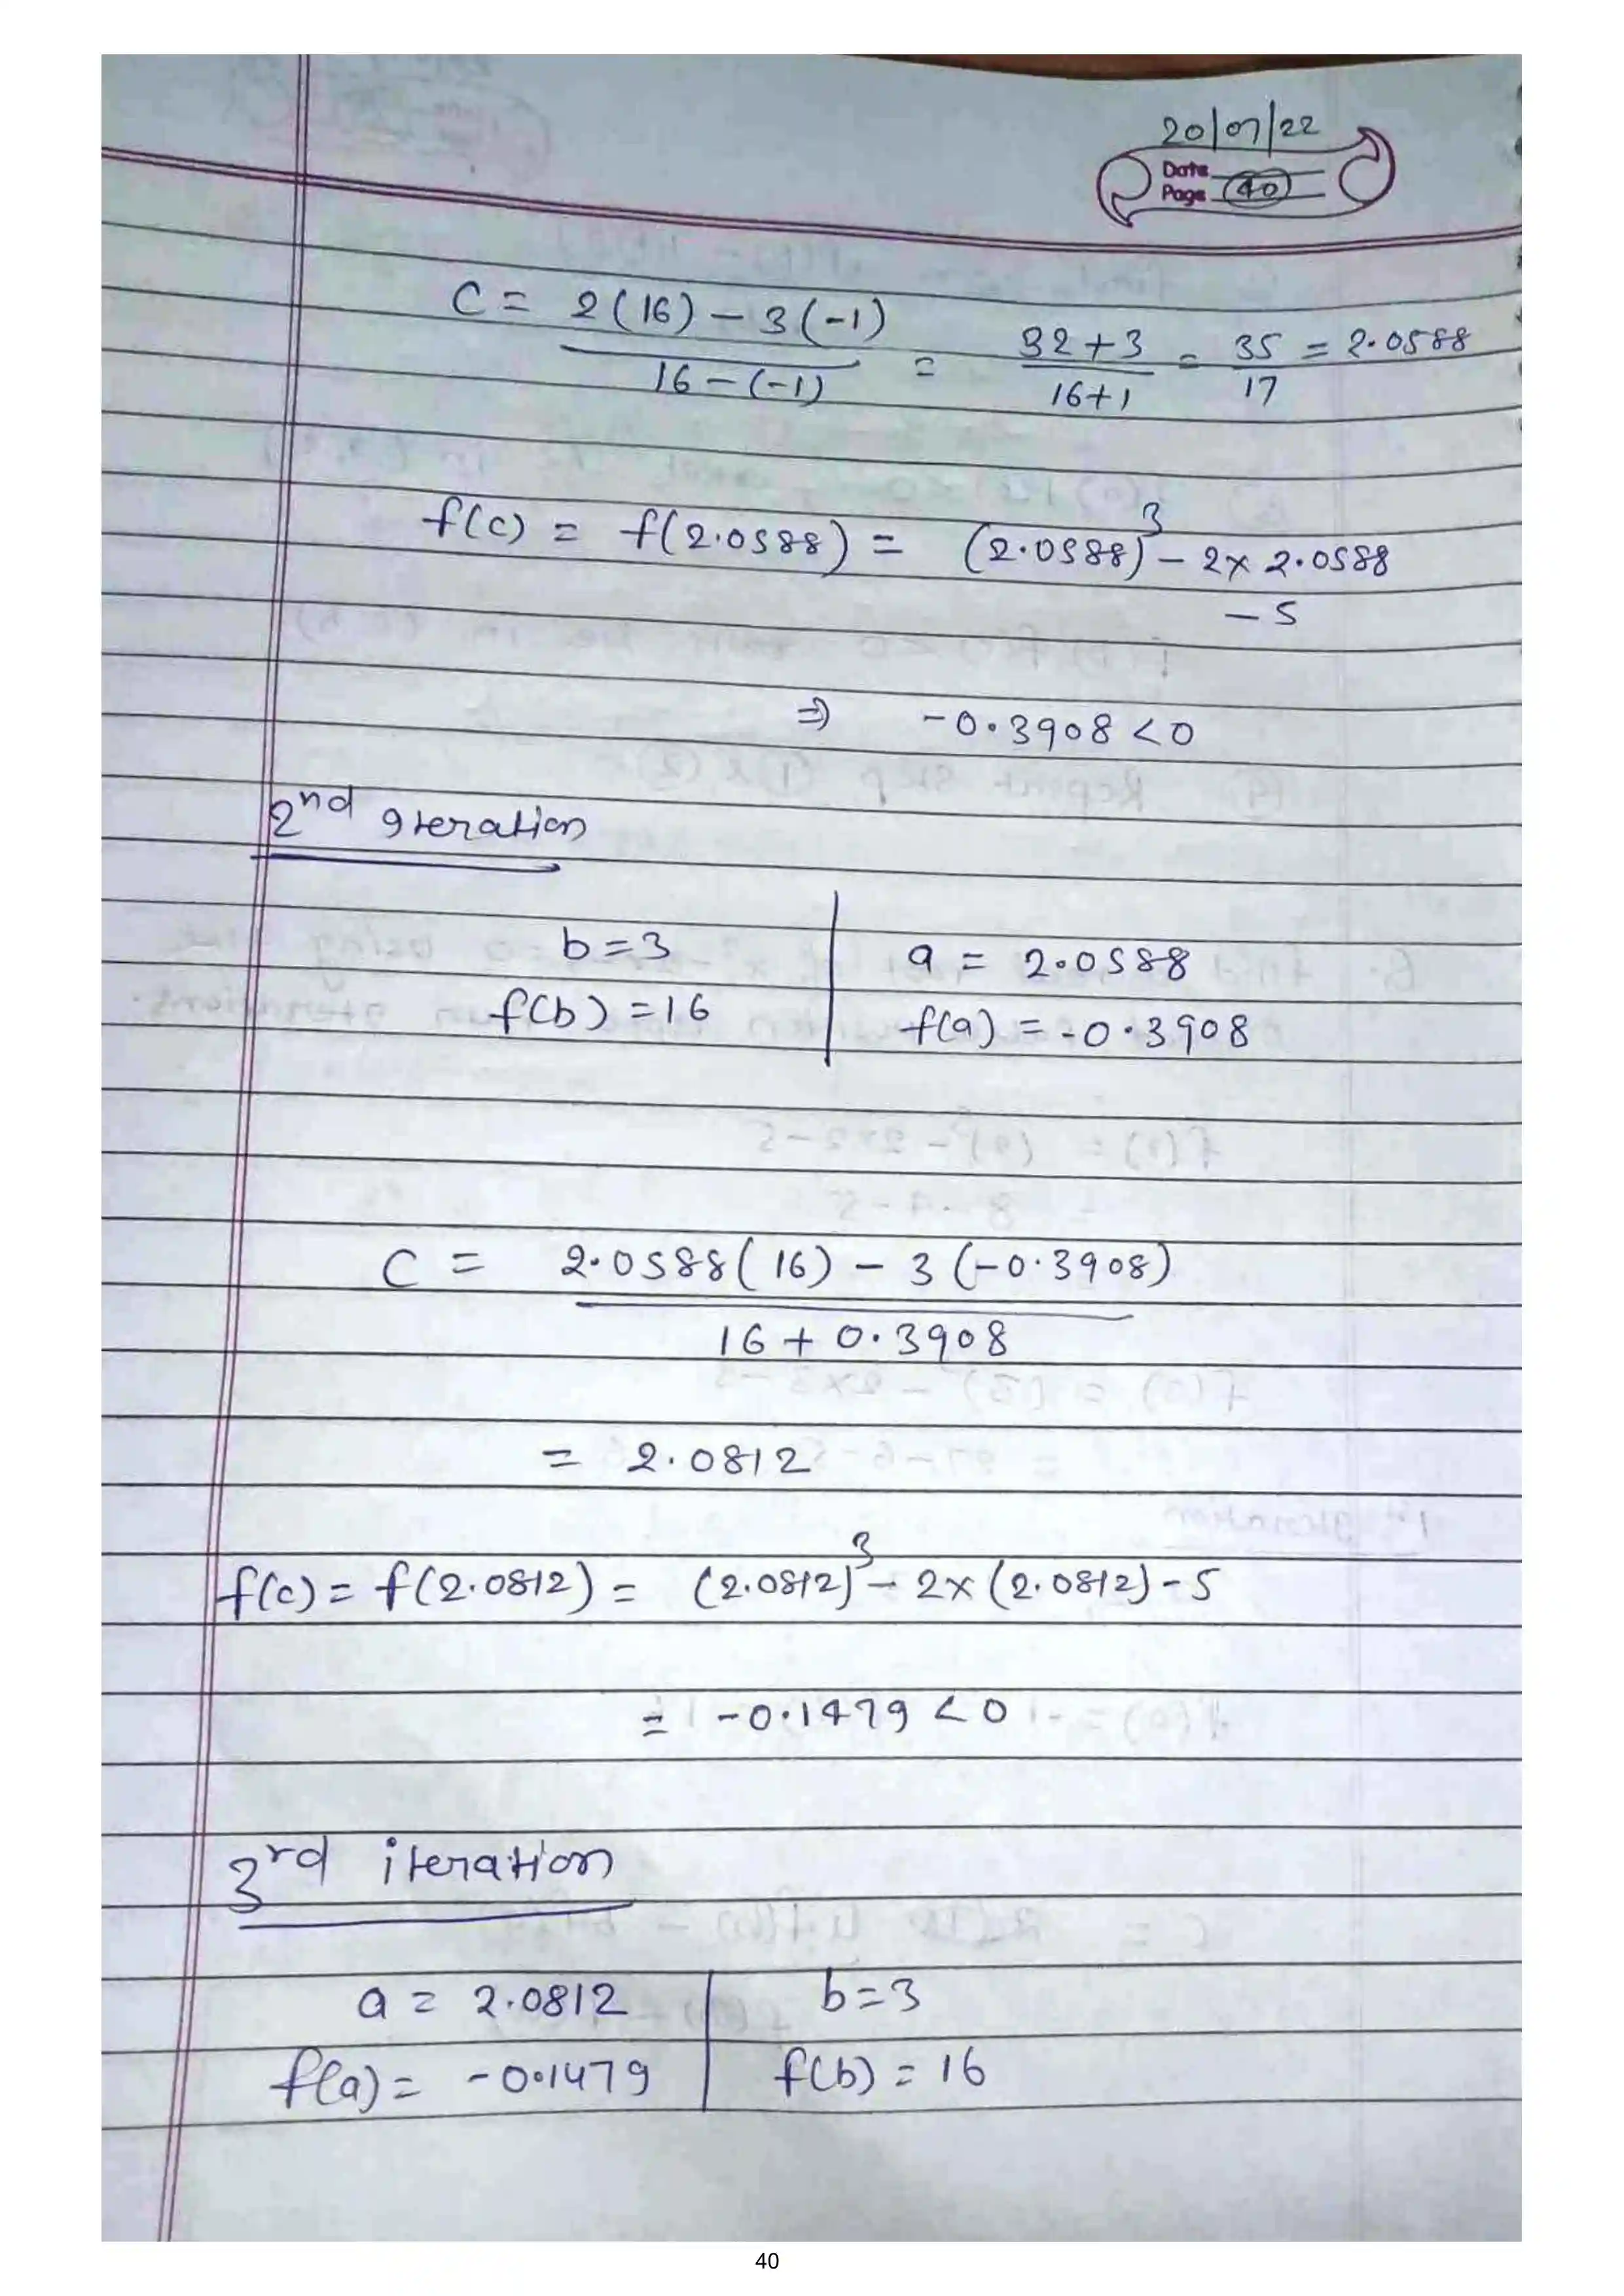 20/07/22
Date
Page 40
C = 2(16) - 3(-1) / 16 - (-1) = 32+3 / 16+1 = 35 / 17 = 2.0588
f(c) = f(2.0588) = (2.0588)³ - 2 x 2.0588
- 5
⇒ -0.3908 < 0
2nd iteration
b = 3 | a = 2.0588
f(b) = 16 | f(a) = -0.3908
C = 2.0588(16) - 3(-0.3908)
16 + 0.3908
= 2.0812
f(c) = f(2.0812) = (2.0812)³ - 2x(2.0812) - 5
= -0.1479 < 0
3rd iteration
a = 2.0812 | b = 3
f(a) = -0.1479 | f(b) = 16
40